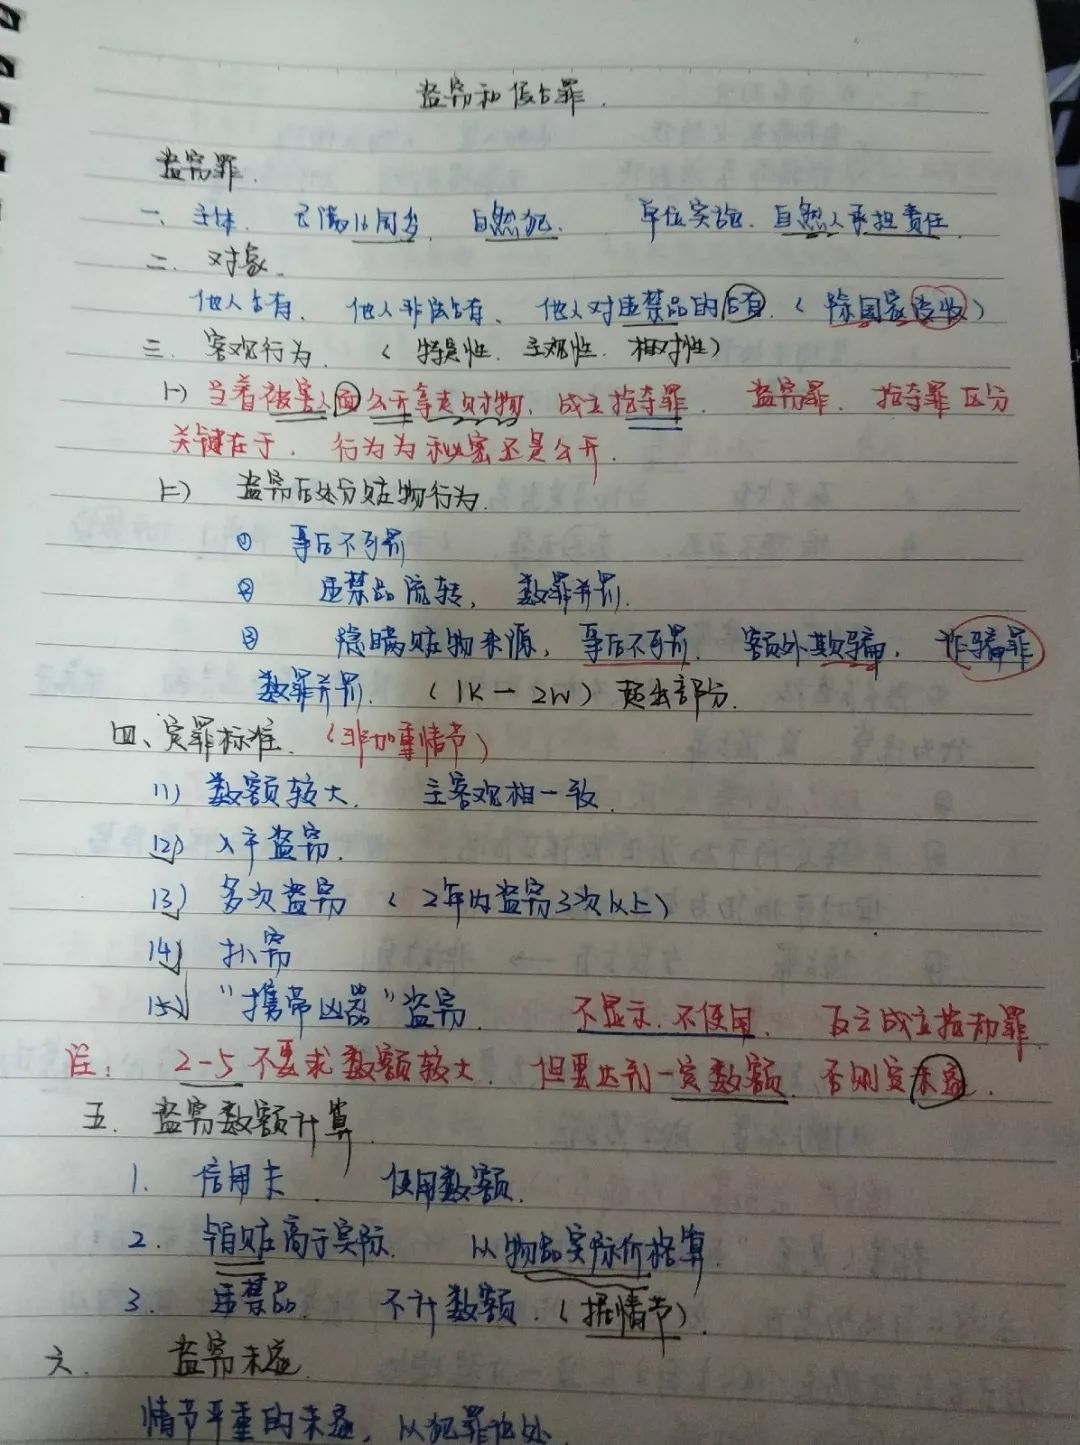 盗窃和侵占罪.
盗窃罪.
一、主体. 已满16周岁. 自然犯. 单位实施. 自然人承担责任.
二. 对象.
他人占有. 他人非法占有. 他人对违禁品的占有. (除国家没收)
三. 客观行为. (特定性. 主观性. 相对性)
(一) 当着被害人面公开拿走财物, 成立抢夺罪. 盗窃罪. 抢夺罪区分
关键在于, 行为为秘密还是公开.
(二) 盗窃后处分赃物行为.
① 事后不可罚
② 违禁品流转, 数罪并罚.
③ 隐瞒赃物来源, 事后不可罚. 额外欺骗, 诈骗罪
数罪并罚. (1K—2W) 超出部分.
四、定罪标准. (非加重情节)
(1) 数额较大. 主客观相一致.
(2) 入户盗窃.
(3) 多次盗窃 (2年内盗窃3次以上)
(4) 扒窃
(5) "携带凶器"盗窃. 不显示. 不使用. 反之成立抢劫罪.
注: 2-5 不要求数额较大. 但要达到一定数额. 否则定未遂.
五. 盗窃数额计算.
1. 信用卡. 使用数额.
2. 销赃高于实际. 以物品实际价格算.
3. 违禁品. 不计数额. (据情节).
六. 盗窃未遂.
情节严重的未遂, 以犯罪论处.